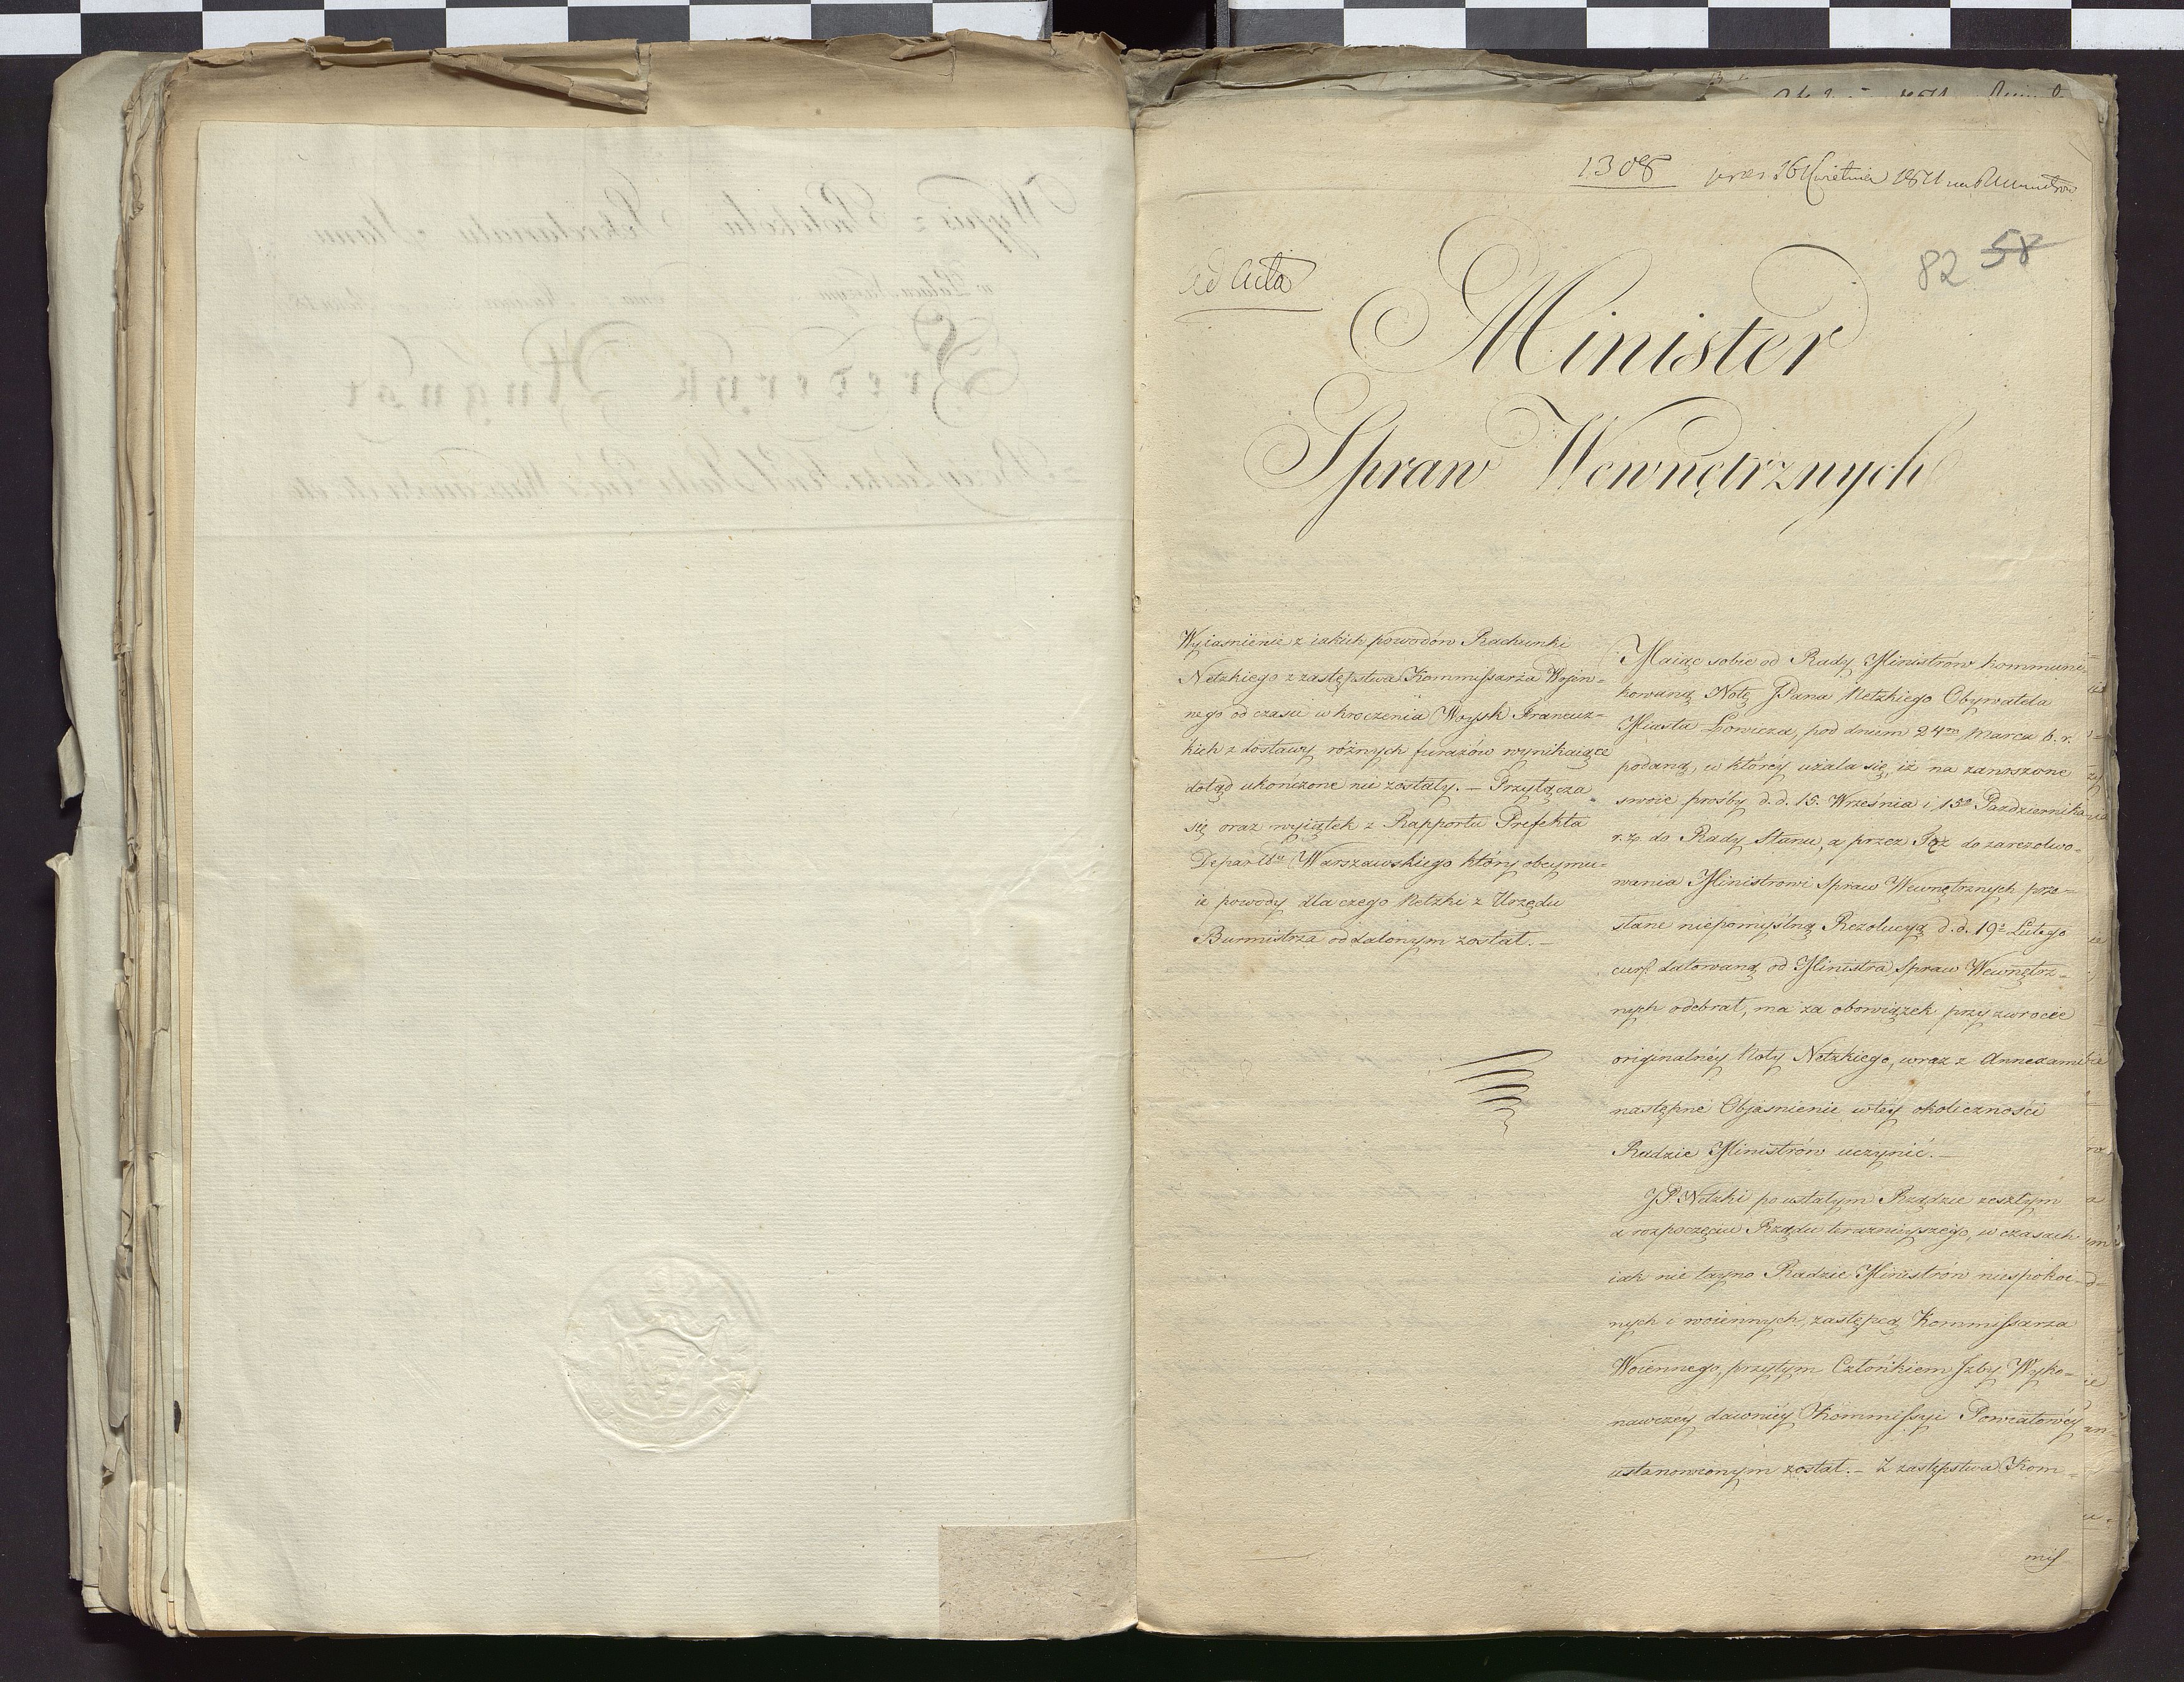 1308
82 58
Ad Acta
Minister
Spraw Wewnętrznych
Wyiasnienie z iakich powodów Rachunki
Netzkiego z zastępstwa Kommissarza Woien=
nego od czasu wkroczenia Woysk Francuz=
kich z dostawy różnych furażów wynikaiące
dotąd ukończone nie zostały. – Przyłącza
się oraz wyiątek z Rapportu Prefekta
Departtu Warszawskiego który obeymu=
ie powody dla czego Netzki z Urzędu
Burmistrza oddalonym został. –
Maiąc sobie od Rady Ministrów kommuni
kowaną Notę JPana Netzkiego Obywatela
Miasta Łowicza, pod dniem 24m Marca b. r.
podaną, w którey użala się, iż na zanoszone
swoie prośby d. d. 15. Września i 15o Pazdziernika
r. z. do Rady Stanu, a przez Tęż do zarezolwo=
wania Ministrowi Spraw Wewnętrznych prze=
słane niepomyślną Rezolucyą d. d. 19o Lutego
curs. datowaną od Ministra Spraw Wewnętrz=
nych odebrał, ma za obowiązek przy zwrocie
originalnéy Noty Netzkiego, wraz z Annexami
następne Objasnienie wtéy okoliczności
Radzie Ministrów uczynić. –
JP. Netzki po ustałym Rządzie zeszłym
a rozpoczęciu Rządu teraznieyszego, w czasach
iak nie tayno Radzie Ministrów niespokoi=
nych i woiennych, zastępcą Kommissarza
Woiennego, przytym Członkiem Izby Wyko=
nawczéy dawniéy Kommissyi Powiatowéy
ustanowionym został. – Z zastępstwa Kom=
mis